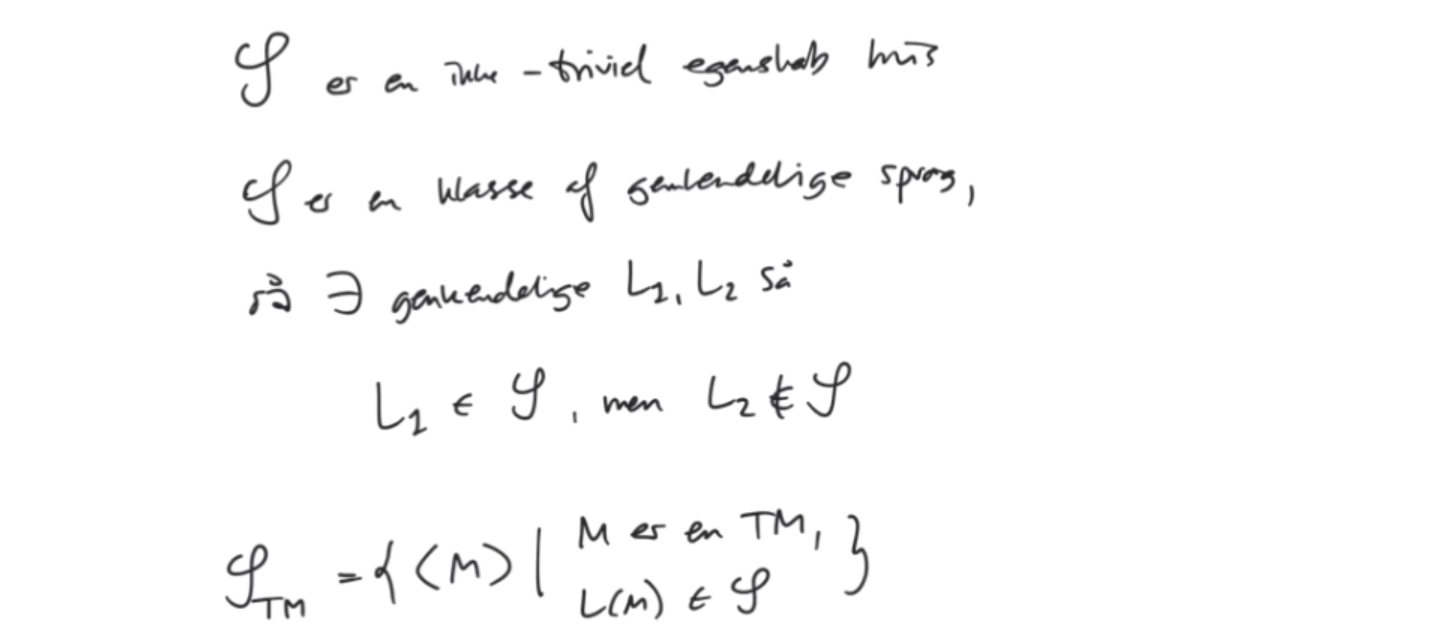 𝒮 er en ikke-triviel egenskab hvis
𝒮 er en klasse af genkendelige sprog,
så ∃ genkendelige L₁, L₂ så
L₁ ∈ 𝒮, men L₂ ∉ 𝒮
𝒮_TM = { ⟨M⟩ | M er en TM, L(M) ∈ 𝒮 }